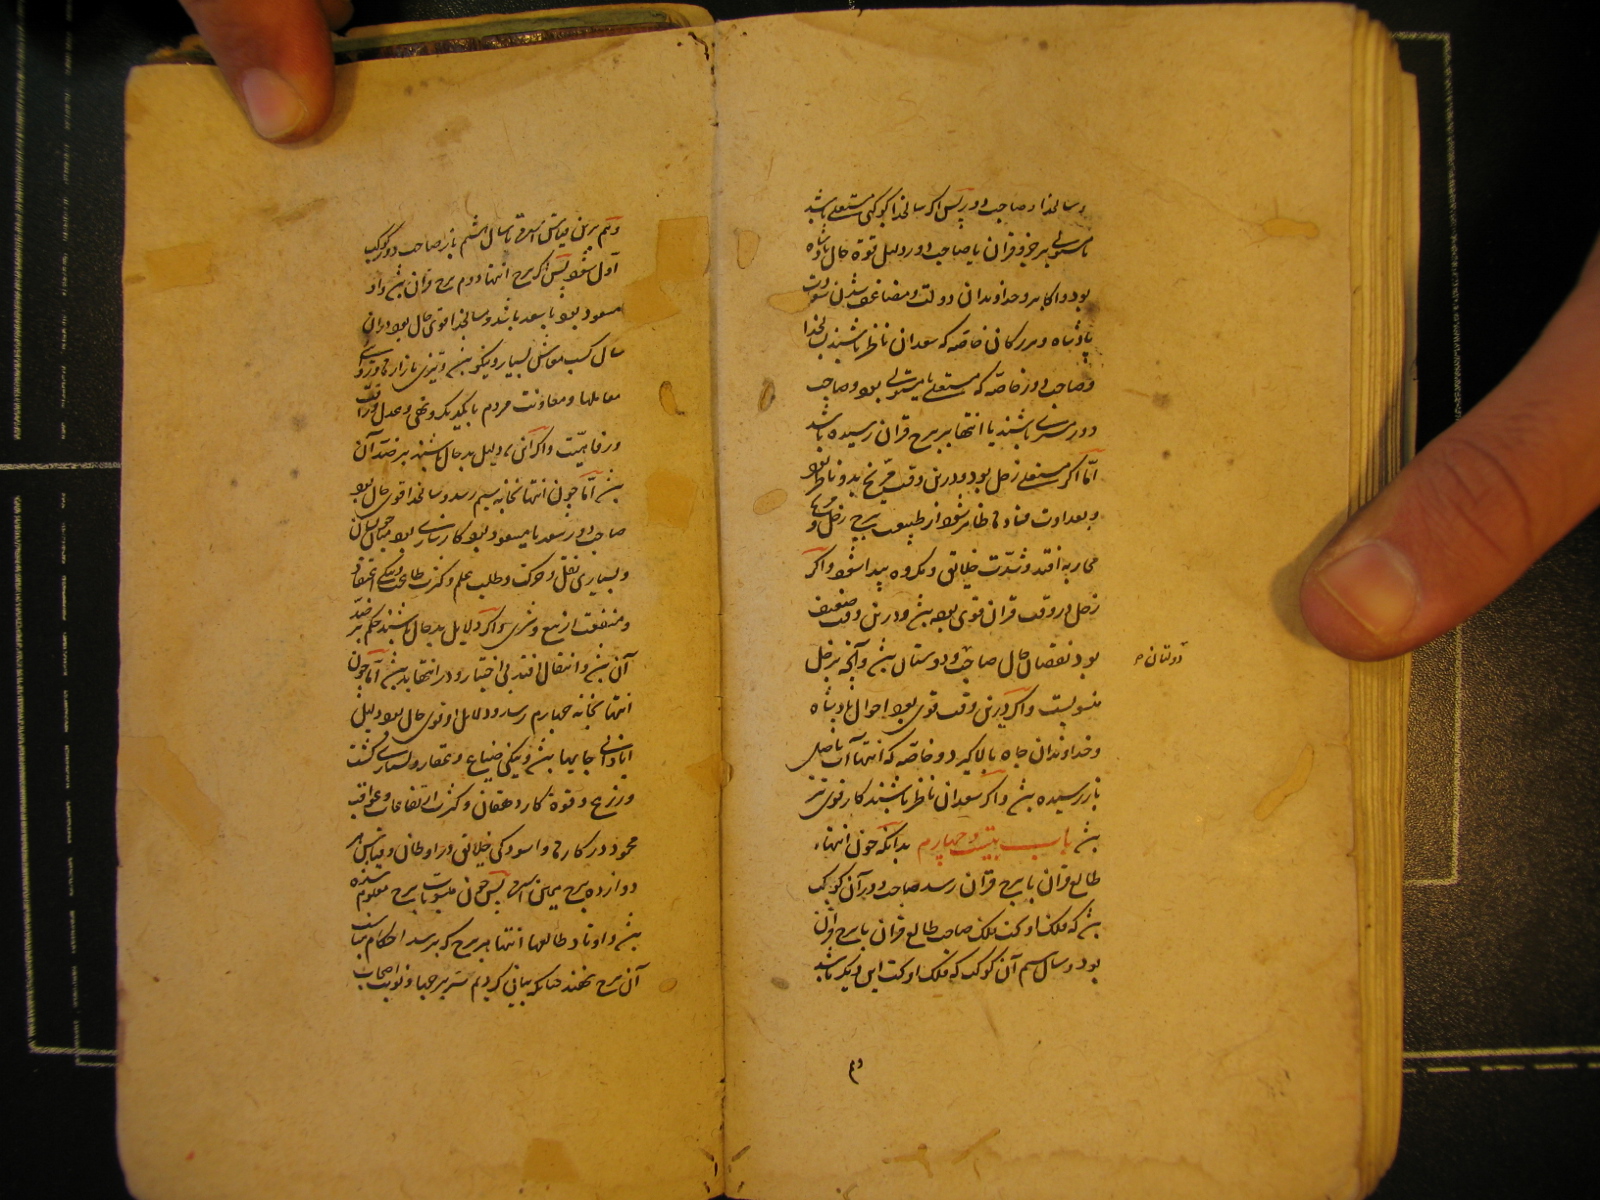 و سالخدا و صاحب دور پس اگر سالخدا کوکبی مستعلی باشد
یا مستولی بر جزو قران یا صاحب دور دلیل قوة حال پادشاه
بود و اکابر و خداوندان دولت و مضاعف شدن
پادشاه و بزرگان خاصه که سعدان ناظر باشند بسالخدا
و صاحب دور خاصه که مستعلی یا مستولی بود و صاحب
دور باشند یا انتها ببرج قران رسیده باشد
امّا اگر مستعلی زحل بود و درین وقت مریخ بدو ناظر بود
و بعداوت ظاهر شود از طبیعت برج زحل و
محاربه افتد و شدّت خلایق و مکروه پیدا شود و اگر
زحل در وقت قران قوی بوده بیند و درین وقت ضعیف
بود نقصان حال صاحب دوستان بیند و آنچه بزحل
دولتان
منسوبست و اگر درین وقت قوی بود احوال پادشاه
و خداوندان جاه بالا گیرد و خاصه که انتها آن باصل
باز رسیده بیند و اگر سعدان ناظر باشند کار قوی تر
بیند باب بیست و چهارم بدانکه چون انتهاء
طالع قران یا برج قران رسد صاحب دور آن کوکب
بیند که فلک او تحت فلک صاحب طالع قران یا برج قران
بود و سال سیم آن کوکب که فلک او تحت این دیگر باشد
وهم
وهم برین قیاس است تا سال هشتم باز صاحب دور کوکب
اوّل شود پس اگر برج انتها دوم برج قران بیند و او
مسعود بود یا سعد باشد و سالخدا قوی حال بود در آن
سال کسب معاش بسیار و نیکو بیند و تیزی بازارها و
معاملها و معاونت مردم با یکدیگر و عدل و
و رفاهیّت و اگر این دلیل بدحال باشند بر ضدّ آن
بیند امّا چون انتها بخانه سیم رسد و سالخدا قوی حال بود
صاحب دور سعد یا مسعود بود
و بسیاری نقل و حرکت و طلب علم و کثرت طاعت
و منفعت از بیع و شری و اگر دلایل بدحال باشند حکم بر ضدّ
آن بیند و انتقال افتد بی اختیار و در انتها بد بیند امّا چون
انتها بخانه چهارم رسد و دلایل او قوی حال بود دلیل
آبادانی جایها بیند و نیکی ضیاع و عقار و بسیاری کشت
و زرع و قوة کار دهقان و کثرت ارتفاعات و عواقب
محمود در کارها و آسودگی خلایق در اوطان و قیاس هر
دوازده برج همین است پس چون منسوبات برج معلوم شده
بیند و اوتاد طالعها انتها بهر برج که برسد احکام مناسب
آن برج نهند چنانکه بیان کردیم